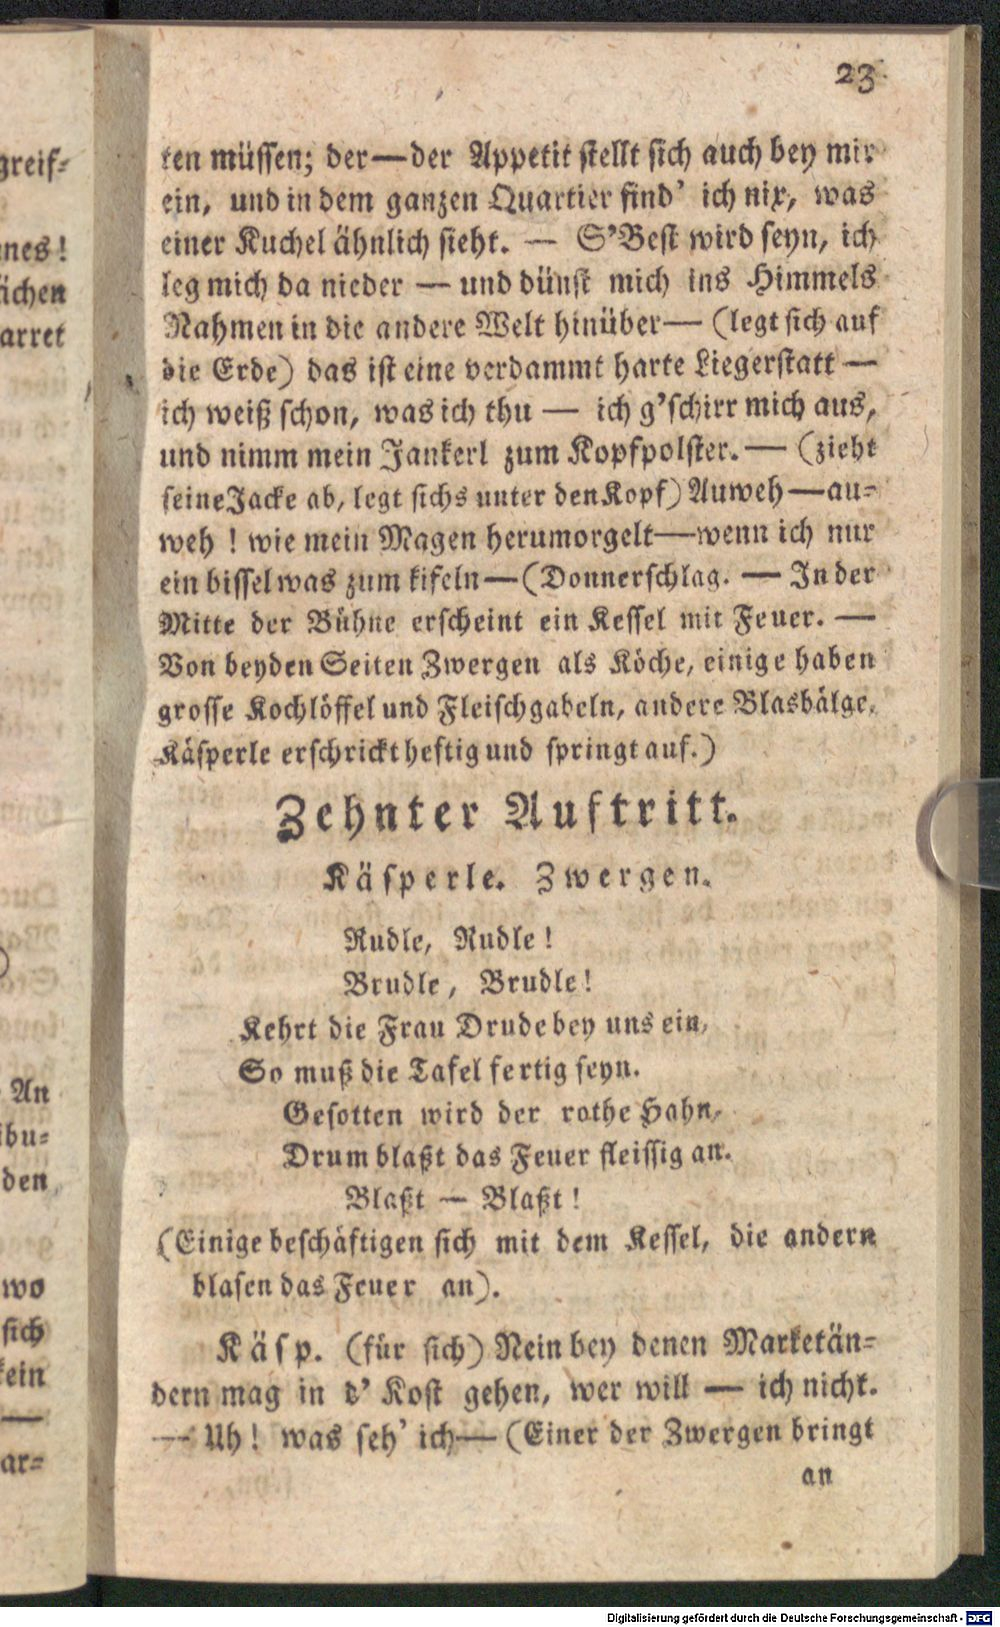 23
ten müssen; der—der Appetit stellt sich auch bey mir
ein, und in dem ganzen Quartier find' ich nix, was
einer Kuchel ähnlich sieht. — S'Best wird seyn, ich
leg mich da nieder — und dünst mich ins Himmels
Nahmen in die andere Welt hinüber— (legt sich auf
die Erde) das ist eine verdammt harte Liegerstatt —
ich weiß schon, was ich thu — ich g'schirr mich aus,
und nimm mein Jankerl zum Kopfpolster. — (zieht
seine Jacke ab, legt sichs unter den Kopf) Auweh—au-
weh! wie mein Magen herumorgelt—wenn ich nur
ein bissel was zum kifeln—(Donnerschlag. — In der
Mitte der Bühne erscheint ein Kessel mit Feuer. —
Von beyden Seiten Zwergen als Köche, einige haben
grosse Kochlöffel und Fleischgabeln, andere Blasbälge.
Käsperle erschrickt heftig und springt auf.)
Zehnter Auftritt.
Käsperle. Zwergen.
Rudle, Rudle!
Brudle, Brudle!
Kehrt die Frau Drude bey uns ein,
So muß die Tafel fertig seyn.
Gesotten wird der rothe Hahn,
Drum blaßt das Feuer fleissig an.
Blaßt — Blaßt!
(Einige beschäftigen sich mit dem Kessel, die andern
blasen das Feuer an).
Käsp. (für sich) Nein bey denen Marketän-
dern mag in d' Kost gehen, wer will — ich nicht.
— Uh! was seh' ich— (Einer der Zwergen bringt
an
greif-
nes!
ächen
arret
An
ibu-
den
wo
sich
kein
—
ar-
Digitalisierung gefördert durch die Deutsche Forschungsgemeinschaft - DFG